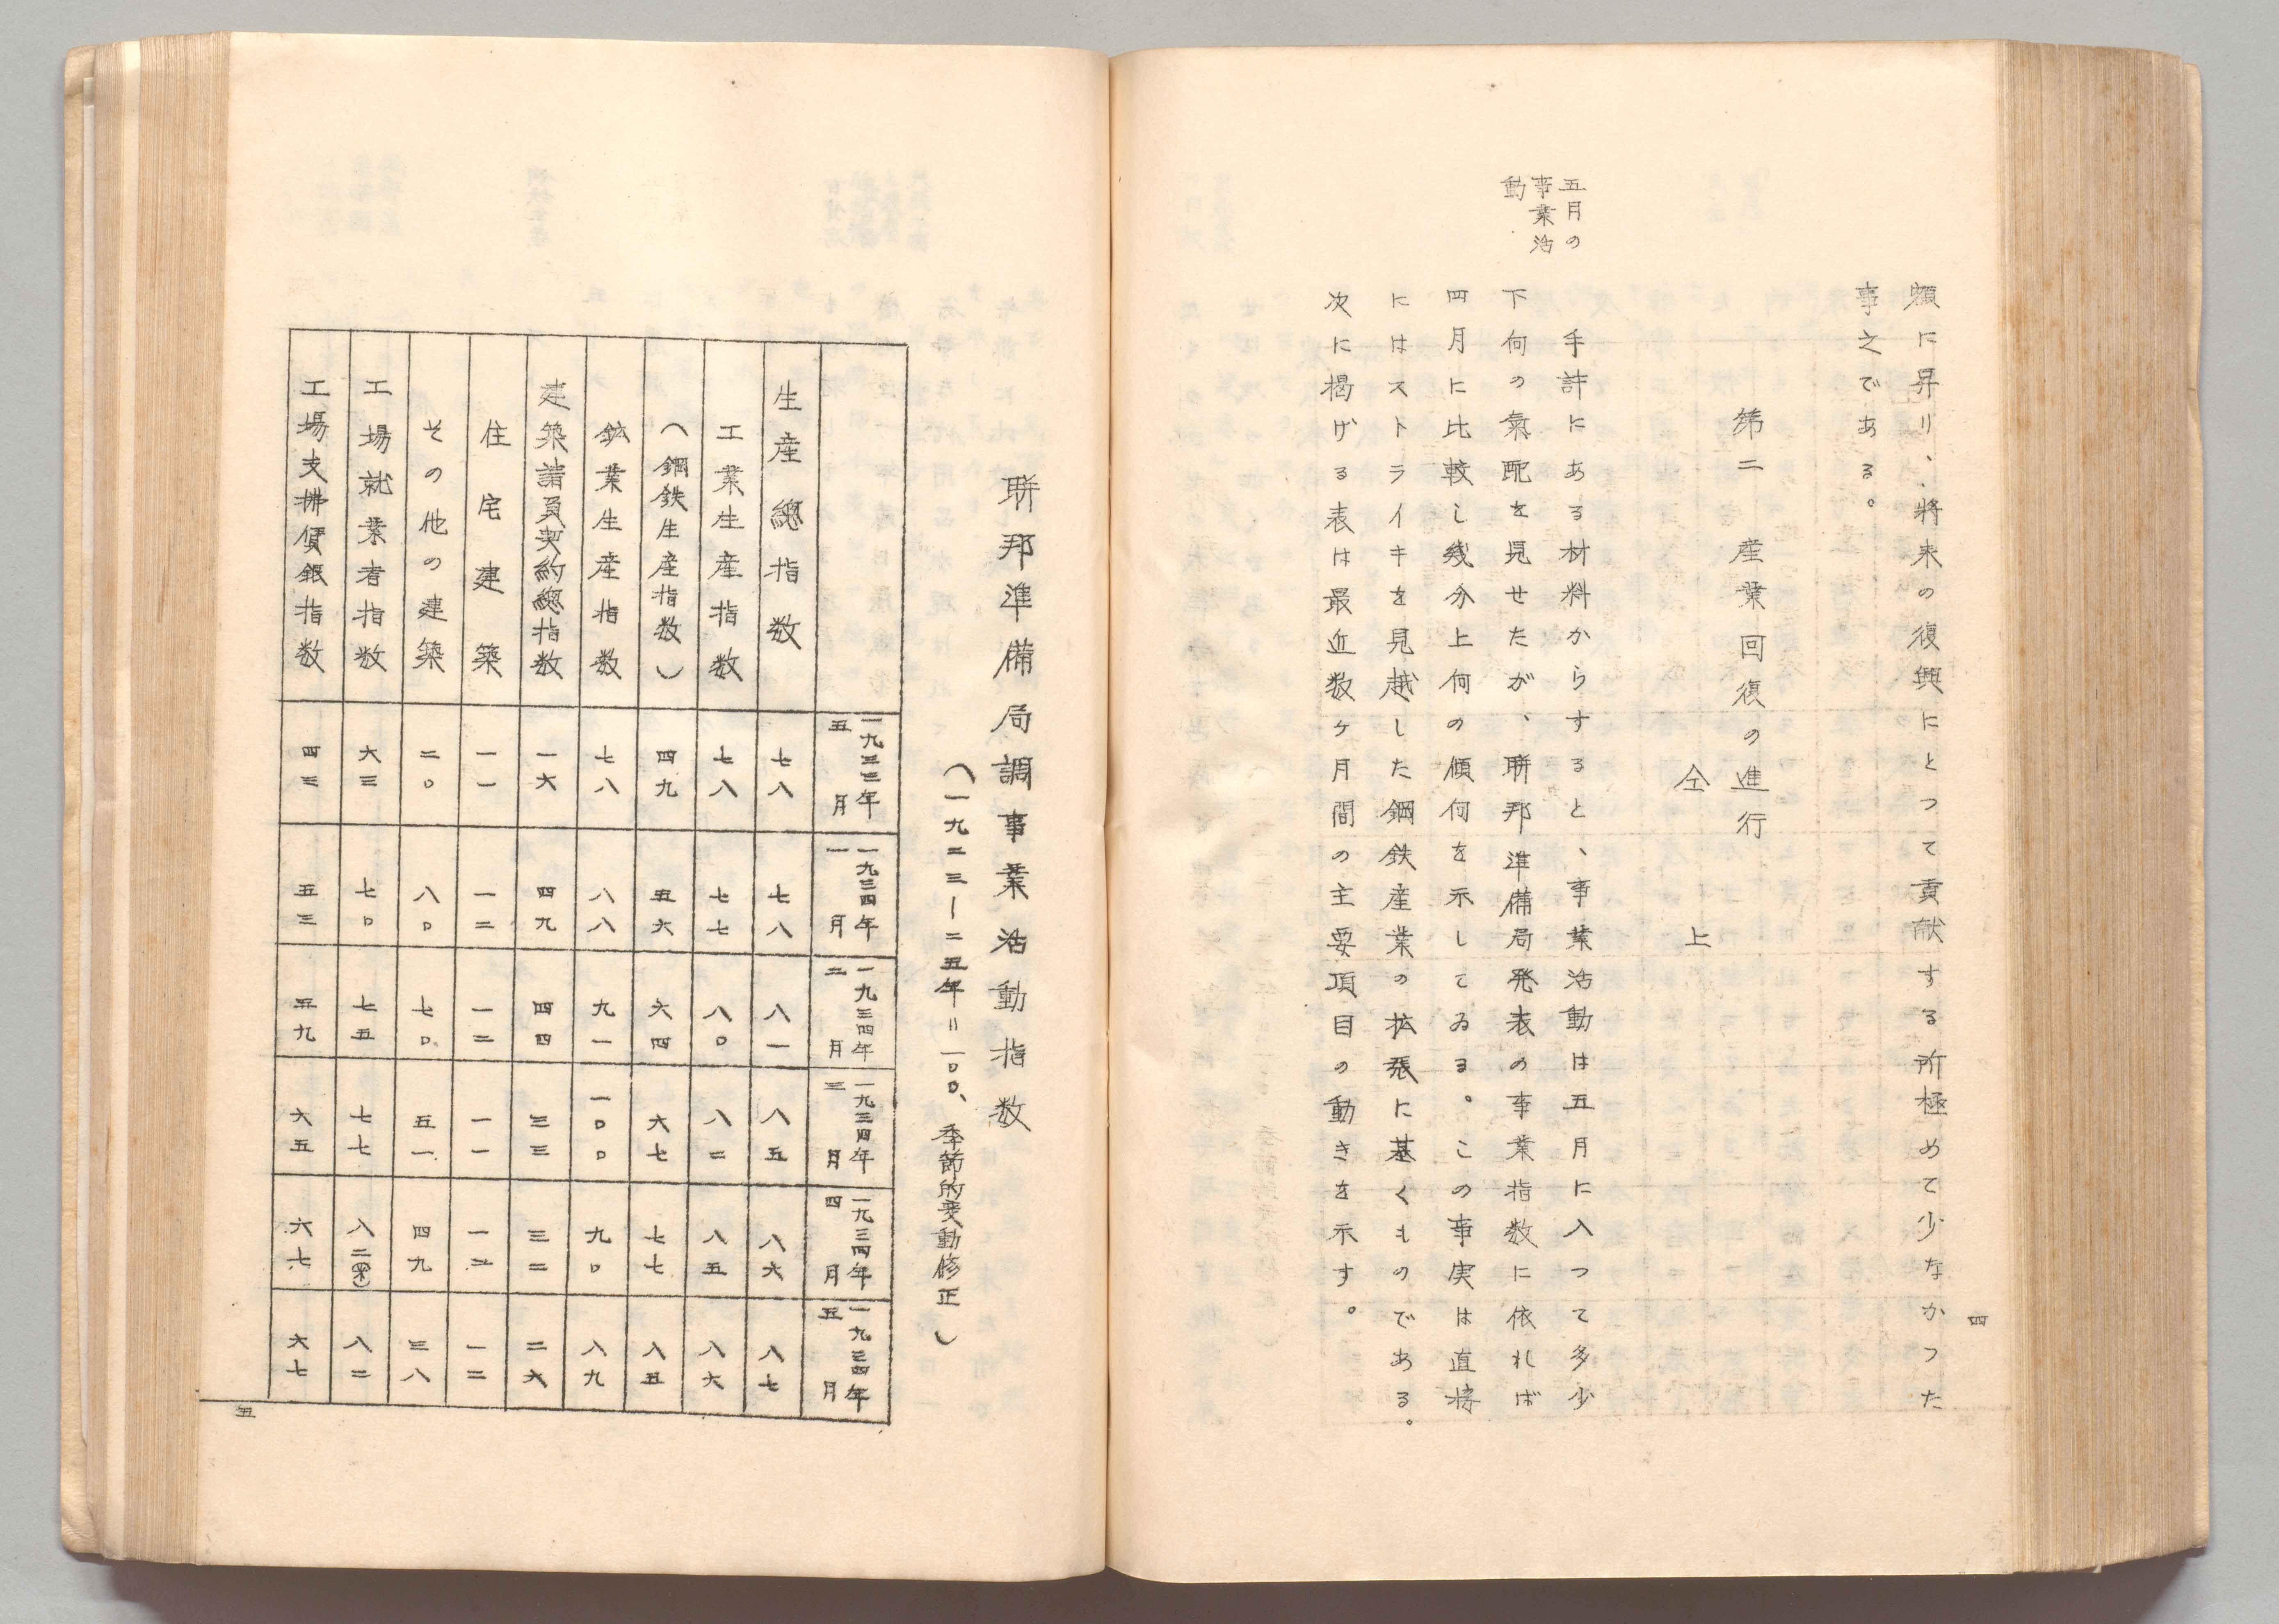 四
額に昇り、將来の復興にとつて貢献する所極めて少なかつた
事之である。
第二　産業回復の進行
仝　上
五月の
事業活
動
手許にある材料からすると、事業活動は五月に入つて多少
下向の氣配を見せたが、聨邦準備局発表の事業指数に依れば
四月に比較し幾分上向の傾向を示してゐる。この事実は直接
にはストライキを見越した鋼鉄産業の拡張に基くものである。
次に掲げる表は最近数ヶ月間の主要項目の動きを示す。
聨邦準備局調事業活動指数
（一九二三ー二五年＝一〇〇、季節的変動修正）
一九三三年五月　一九三四年一月　一九三四年二月　一九三四年三月　一九三四年四月　一九三四年五月
生産總指数　七八　七八　八一　八五　八六　八七
工業生産指数　七八　七七　八〇　八二　八五　八六
（鋼鉄生産指数）　四九　五六　六四　六七　七七　八五
鉱業生産指数　七八　八八　九一　一〇〇　九〇　八九
建築請負契約總指数　一六　四九　四四　三三　三二　二六
住宅建築　一一　一二　一二　一一　一二　一二
その他の建築　二〇　八〇　七〇　五一　四九　三八
工場就業者指数　六三　七〇　七五　七七　八二　八二
工場支拂賃銀指数　四三　五三　五九　六五　六七　六七
五